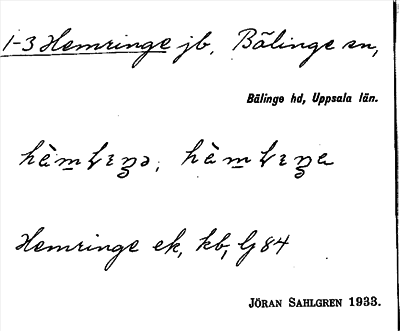 1-3 Hemringe jb, Bälinge sn,
Bälinge hd, Uppsala län.
Hemringe ek, kb, Lg 84
JÖRAN SAHLGREN 1933.